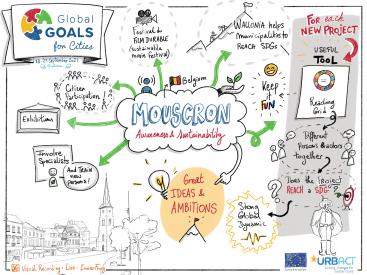 Global
GOALS
for Cities
16-17 September 2021
Festival du
FILM DURABLE
(sustainable
movie Festival)
WALLONIA helps
municipalities to
REACH SDGs
For each
NEW PROJECT
USEFUL
TOOL
Reading
Grid
Different
Persons & actors
together
Does the Project
REACH a SDG?
Citizen
Participation
Belgium
Keep
it
FUN
MOUSCRON
Awareness & Sustainability
Exhibitions
Involve
Specialists
And Train
new
persons!
Great
IDEAS &
AMBITIONS
Strong
Global
Dynamic
Visual Recording • Live •
URBACT